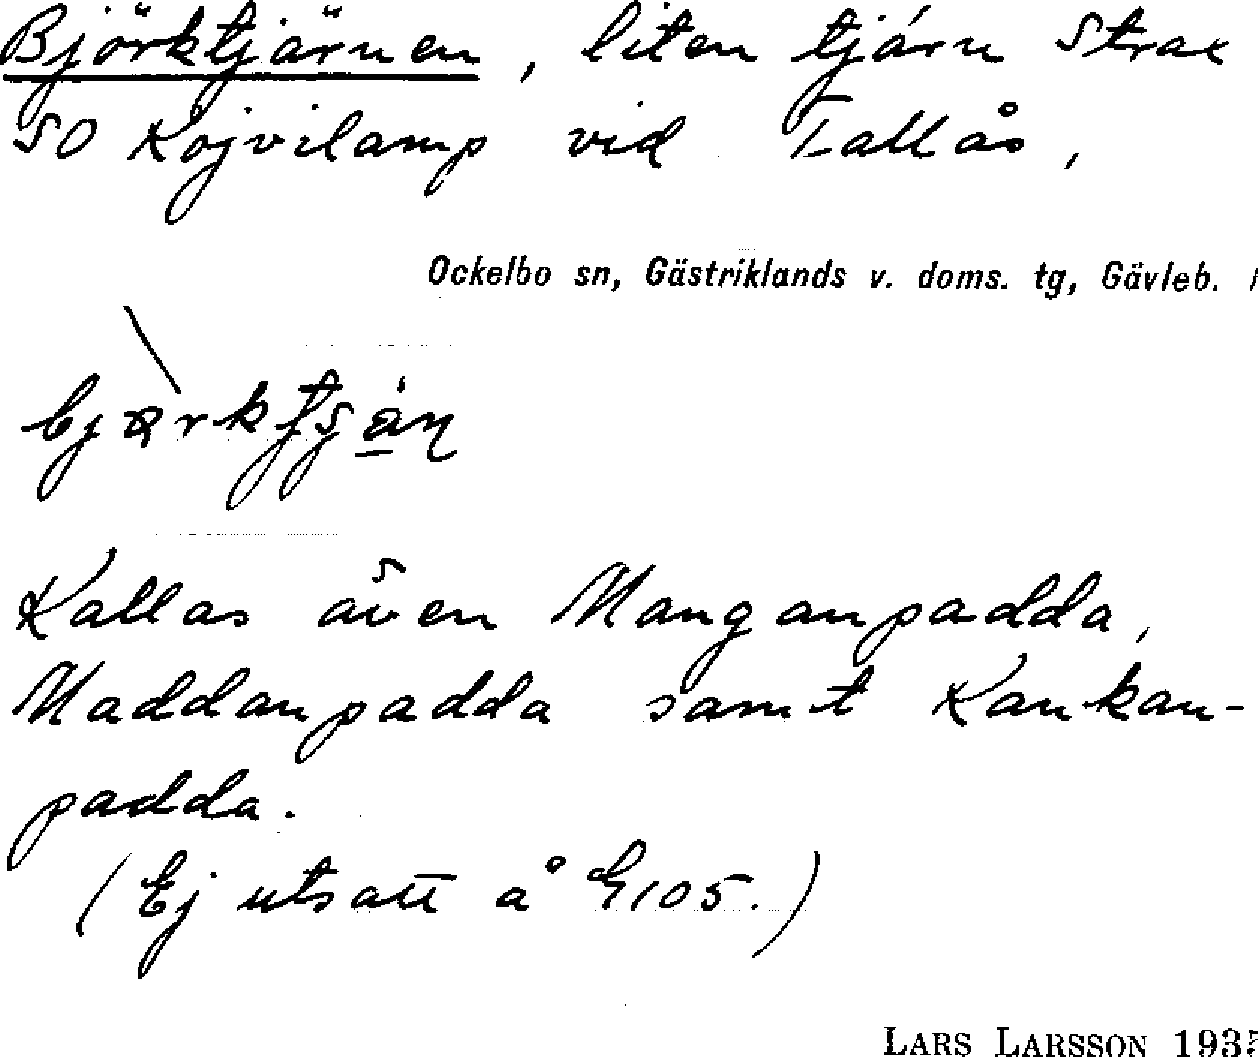 Björktjärnen, liten tjärn strax
SO Kojvilamp vid Tallås,
Ockelbo sn, Gästriklands v. doms. tg, Gävleb.
Kallas även Manganpadda,
Maddanpadda samt Kankan-
padda.
(Ej utsatt å G105.)
LARS LARSSON 1935